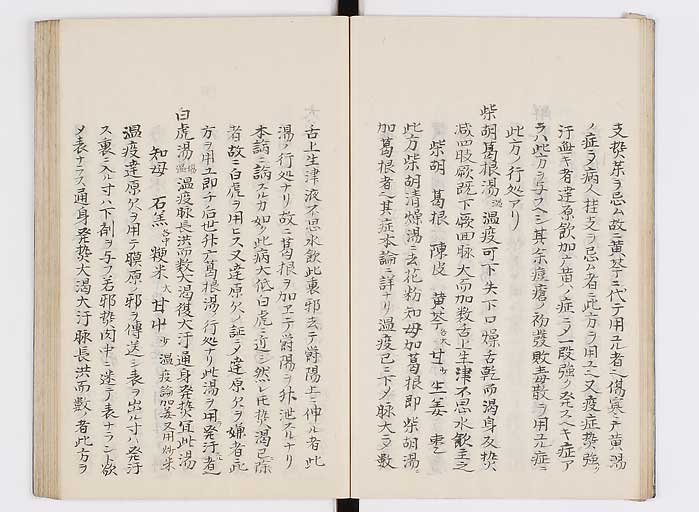 支撐楽ヲ忌ム故ニ黄芩ニ代テ用ユル者ハ傷寒ニ黄湯
ノ症ヲ病人桂支ヲ忌ム者ニ此方ヲ用ユ又疫症熱強ク
汗無キ者達原飲加广黄ノ症ニ〆一段強ク発スヘキ症ア
ラハ此方ヲ与フヘシ其余痘瘡ノ初發敗毒散ヲ用ユル症ニ
此方ノ行処アリ
柴胡葛根湯 温疫可下失下口燥舌乾而渇身反熱
减四肢厥既下厥回脉大而加数舌上生津不思水飲主之
柴胡 葛根 陳皮 黄芩 甘 生姜 棗
此方柴胡清燥湯ニ去花粉知母加葛根即柴胡湯ニ
加葛根者ハ其症本論ニ詳ナリ温疫已ニ下〆脉大ラ数
舌上生津液不思水飲此裏邪去テ欝陽上ニ伸ル者此
湯ノ行処ナリ故ニ葛根ヲ加ヱテ欝陽ヲ外泄スルナリ
本論ニ論スルカ如ク此病大低白虎ニ近シ然レ𪜈熱渇已除
者故ニ白虎ヲ用ヒス又達原欠ノ証ラ〆達原欠ヲ嫌者ニ此
方ヲ用ユ即チ后世升广葛根湯ノ行処ナリ此湯ヲ用発汗者
白虎湯 温疫 温疫脉長洪而数大渇復大汗通身発熱宜此湯
知母 石羔 粳米 大 甘中 少 温疫論加姜又用炒米
温疫達原欠ヲ用テ膜原ノ邪ヲ傳送シ表ヲ出ル寸ハ発汗
ス裏ニ入ル寸ハ下剤ヲ与フ若邪熱肉中ニ迷テ表ナラント欲
〆表ナラス通身発熱大渇大汗脉長洪而數者此方ヲ